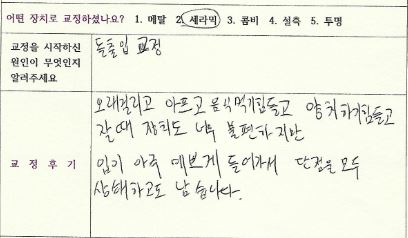 어떤 장치로 교정하셨나요? 1. 메탈 2. 세라믹 3. 콤비 4. 설측 5. 투명
교정을 시작하신
원인이 무엇인지
알려주세요
돌출입 교정
교 정 후 기
오래걸리고 아프고 음식먹기힘들고 양치하기힘들고
잘때 장치도 너무 불편하지만
입이 아주 예쁘게 들어가서 단점을 모두
상쇄하고도 남습니다.